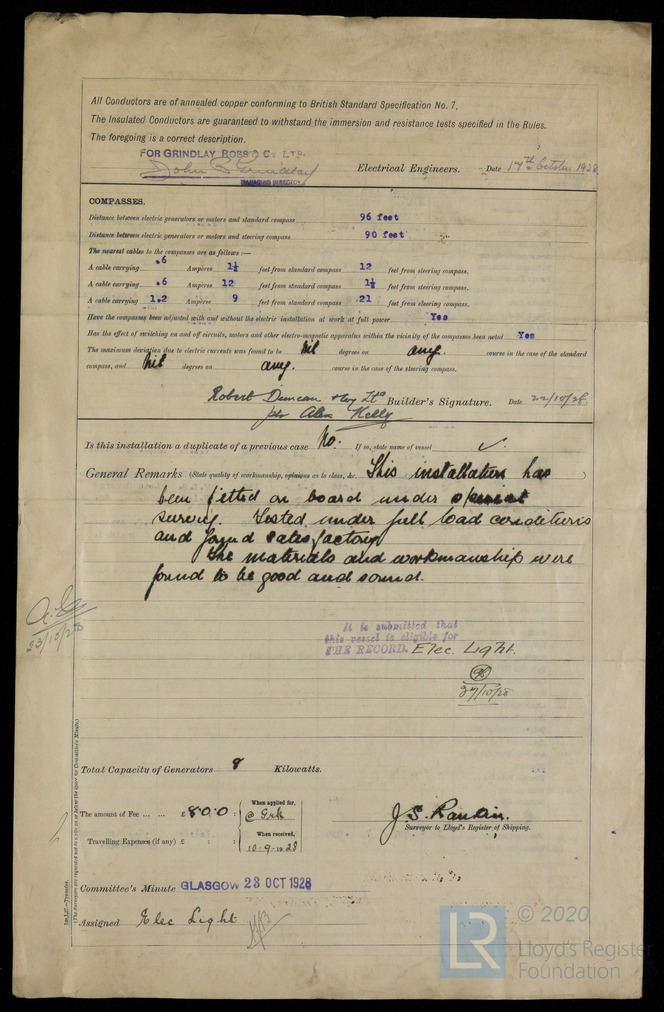 All Conductors are of annealed copper conforming to British Standard Specification No. 7.
The Insulated Conductors are guaranteed to withstand the immersion and resistance tests specified in the Rules.
The foregoing is a correct description.
FOR GRINDLAY ROSS & Co LTD.
John Grindlay Electrical Engineers. Date 17th October 1928
MANAGING DIRECTOR
COMPASSES.
Distance between electric generators or motors and standard compass 96 feet
Distance between electric generators or motors and steering compass 90 feet
The nearest cables to the compasses are as follows:—
A cable carrying .6 Ampères 1½ feet from standard compass 12 feet from steering compass.
A cable carrying .6 Ampères 12 feet from standard compass 1½ feet from steering compass.
A cable carrying 1.2 Ampères 9 feet from standard compass 21 feet from steering compass.
Have the compasses been adjusted with and without the electric installation at work at full power Yes
Has the effect of switching on and off circuits, motors and other electro-magnetic apparatus within the vicinity of the compasses been noted Yes
The maximum deviation due to electric currents was found to be Nil degrees on any. course in the case of the standard
compass, and Nil degrees on any. course in the case of the steering compass.
Robert Duncan & Coy Ltd Builder's Signature. Date 22/10/28
per Alex Kelly
Is this installation a duplicate of a previous case No. If so, state name of vessel ✓.
General Remarks (State quality of workmanship, opinions as to class, &c. This installation has )
been fitted on board under special
survey. Tested under full load conditions
and found satisfactory
The materials and workmanship were
found to be good and sound.
23/10/28
It is submitted that
this vessel is eligible for
THE RECORD. Elec. Light.
27/10/28
Total Capacity of Generators 8 Kilowatts.
The amount of Fee ... ... £ 8:0:0 : When applied for,
@ Grk
J. S. Rankin.
Surveyor to Lloyd's Register of Shipping.
Travelling Expenses (if any) £ : : When received,
10-9-1928
Committee's Minute GLASGOW 23 OCT 1928
Assigned Elec Light
Im.1,27.—Transfer.
(The Surveyors are requested not to write on or below the space for Committee's Minute.)
LR
© 2020
Lloyd's Register
Foundation